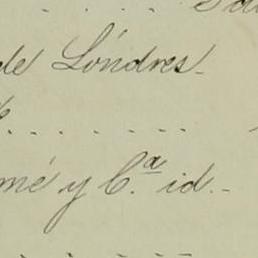 de Lóndres
mé y C.ª id.